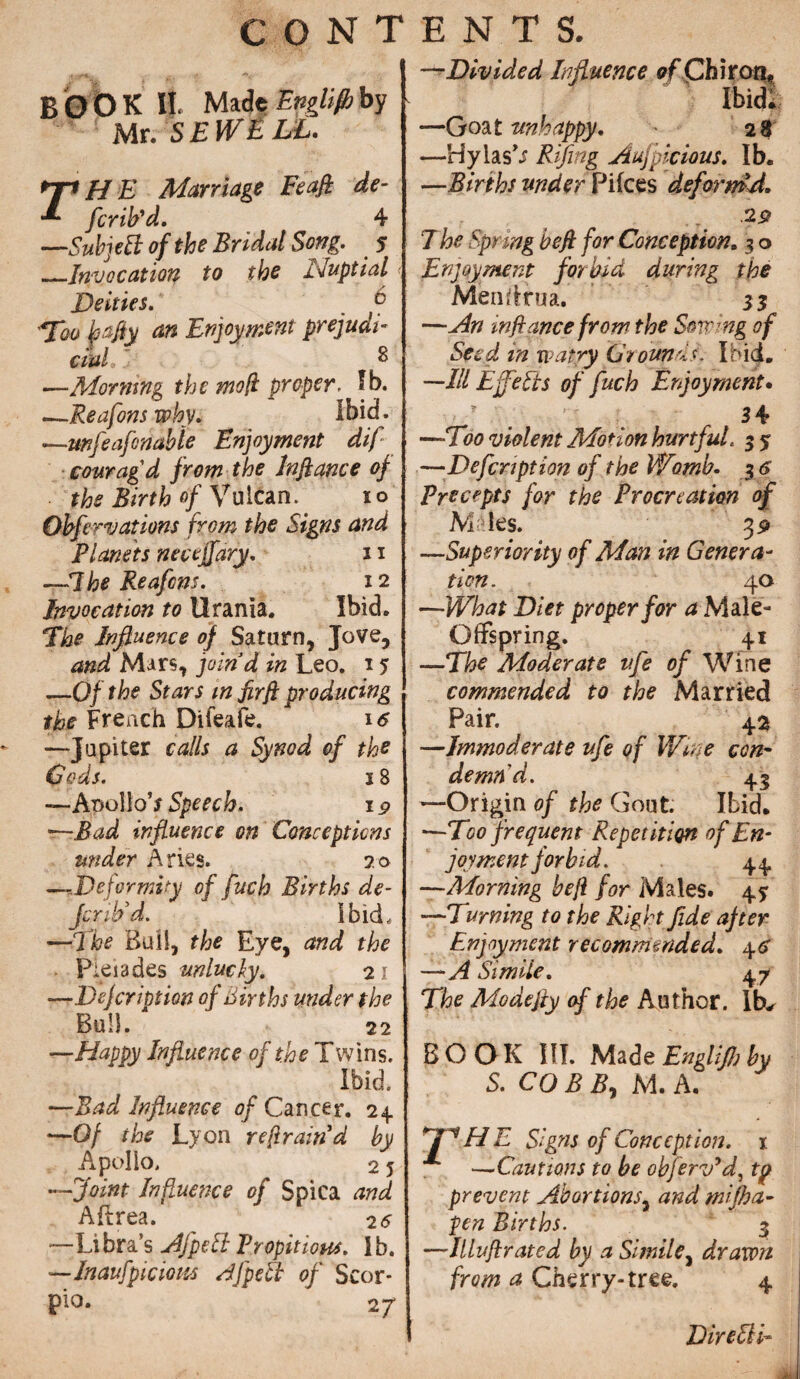 CONTENTS.
BOOK II. Made Engliſh by
Mr. SEWELL.
THE Marriage Feaſt de-
ſcrib'd. 4
—Subject of the Bridal Song. 5
—Invocation to the Nuptial
Deities. 6
Too haſty an Enjoyment prejudi-
cial. 8
—Morning the moſt proper. Ib.
—Reaſons why. Ibid.
—unſeaſonable Enjoyment diſ-
courag'd from the Inſtance of
the Birth of Vulcan. 10
Obſervations from the Signs and
Planets neceſſary. 11
—The Reaſons. 12
Invocation to Urania. Ibid.
The Influence of Saturn, Jove,
and Mars, join'd in Leo. 15
—Of the Stars in firſt producing
the French Diſeaſe. 16
—Jupiter calls a Synod of the
Gods. 18
—Apollo's Speech. 19
—Bad influence on Conceptions
under Aries. 20
—Deformity of ſuch Births de-
ſcrib'd. Ibid.
—The Bull, the Eye, and the
Pleiades unlucky. 21
—Deſcription of Births under the
Bull. 22
—Happy Influence of the Twins.
Ibid.
—Bad Influence of Cancer. 24
—Of the Lyon reſtrain'd by
Apollo. 25
—Joint Influence of Spica and
Aſtrea. 26
—Libra's Aſpect Propitious. Ib.
—Inauſpicious Aſpect of Scor-
pio. 27
—Divided Influence of Chiron.
Ibid.
—Goat unhappy. 28
—Hylas's Riſing Auſpicious. Ib.
—Births under Piſces deform'd.
29
The Spring beſt for Conception. 30
Enjoyment forbid during the
Menſtrua. 33
—An inſtance from the Sowing of
Seed in watry Grounds. Ibid.
—Ill Effects of ſuch Enjoyment.
34
—Too violent Motion hurtful. 35
—Deſcription of the Womb. 36
Precepts for the Procreation of
Males. 39
—Superiority of Man in Genera-
tion. 40
—What Diet proper for a Male-
Offspring. 41
—The Moderate uſe of Wine
commended to the Married
Pair. 42
—Immoderate uſe of Wine con-
demn'd. 43
—Origin of the Gout. Ibid.
—Too frequent Repetition of En-
joyment forbid. 44
—Morning beſt for Males. 45
—Turning to the Right ſide after
Enjoyment recommended. 46
—A Simile. 47
The Modeſty of the Author. Ib.
BOOK III. Made Engliſh by
S. COBB, M. A.
THE Signs of Conception. 1
—Cautions to be obſerv'd, to
prevent Abortions, and miſha-
pen Births. 3
—Illuſtrated by a Simile, drawn
from a Cherry-tree. 4
Directi-